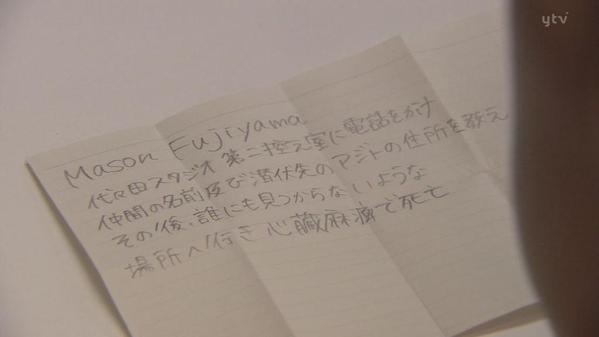 ytv
Mason Fujiyama
代々田スタジオ第二控え室に電話をかけ
仲間の名前及び潜伏先のアジトの住所を教え
その後、誰にも見つからないような
場所へ行き心臓麻痺で死亡